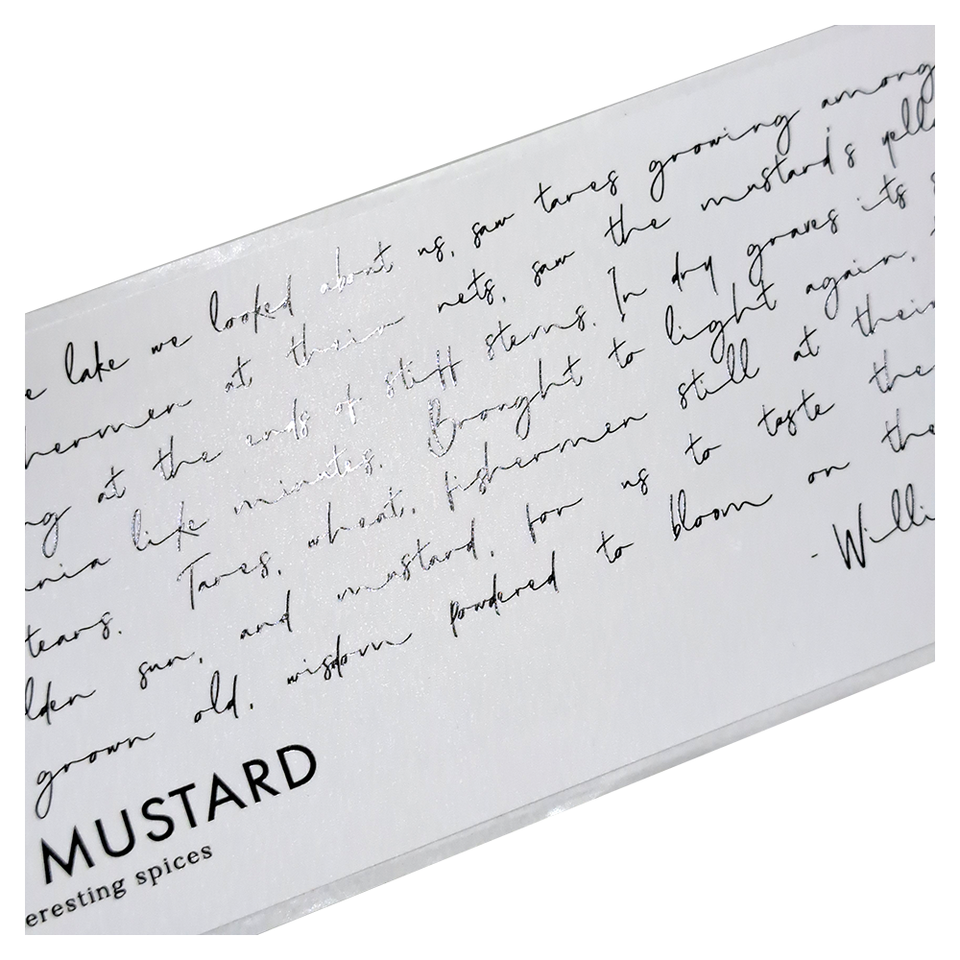 e lake we looked about us, saw tares growing among
hermen at their nets, saw the mustard's yello
ng at the ends of stiff stems. In dry graves its s
nia like minutes. Brought to light again,
tears. Tares, wheat, fishermen still at their
lden sun, and mustard, for us to taste the
grown old, wisdom powdered to bloom on the
-Willi
MUSTARD
eresting spices